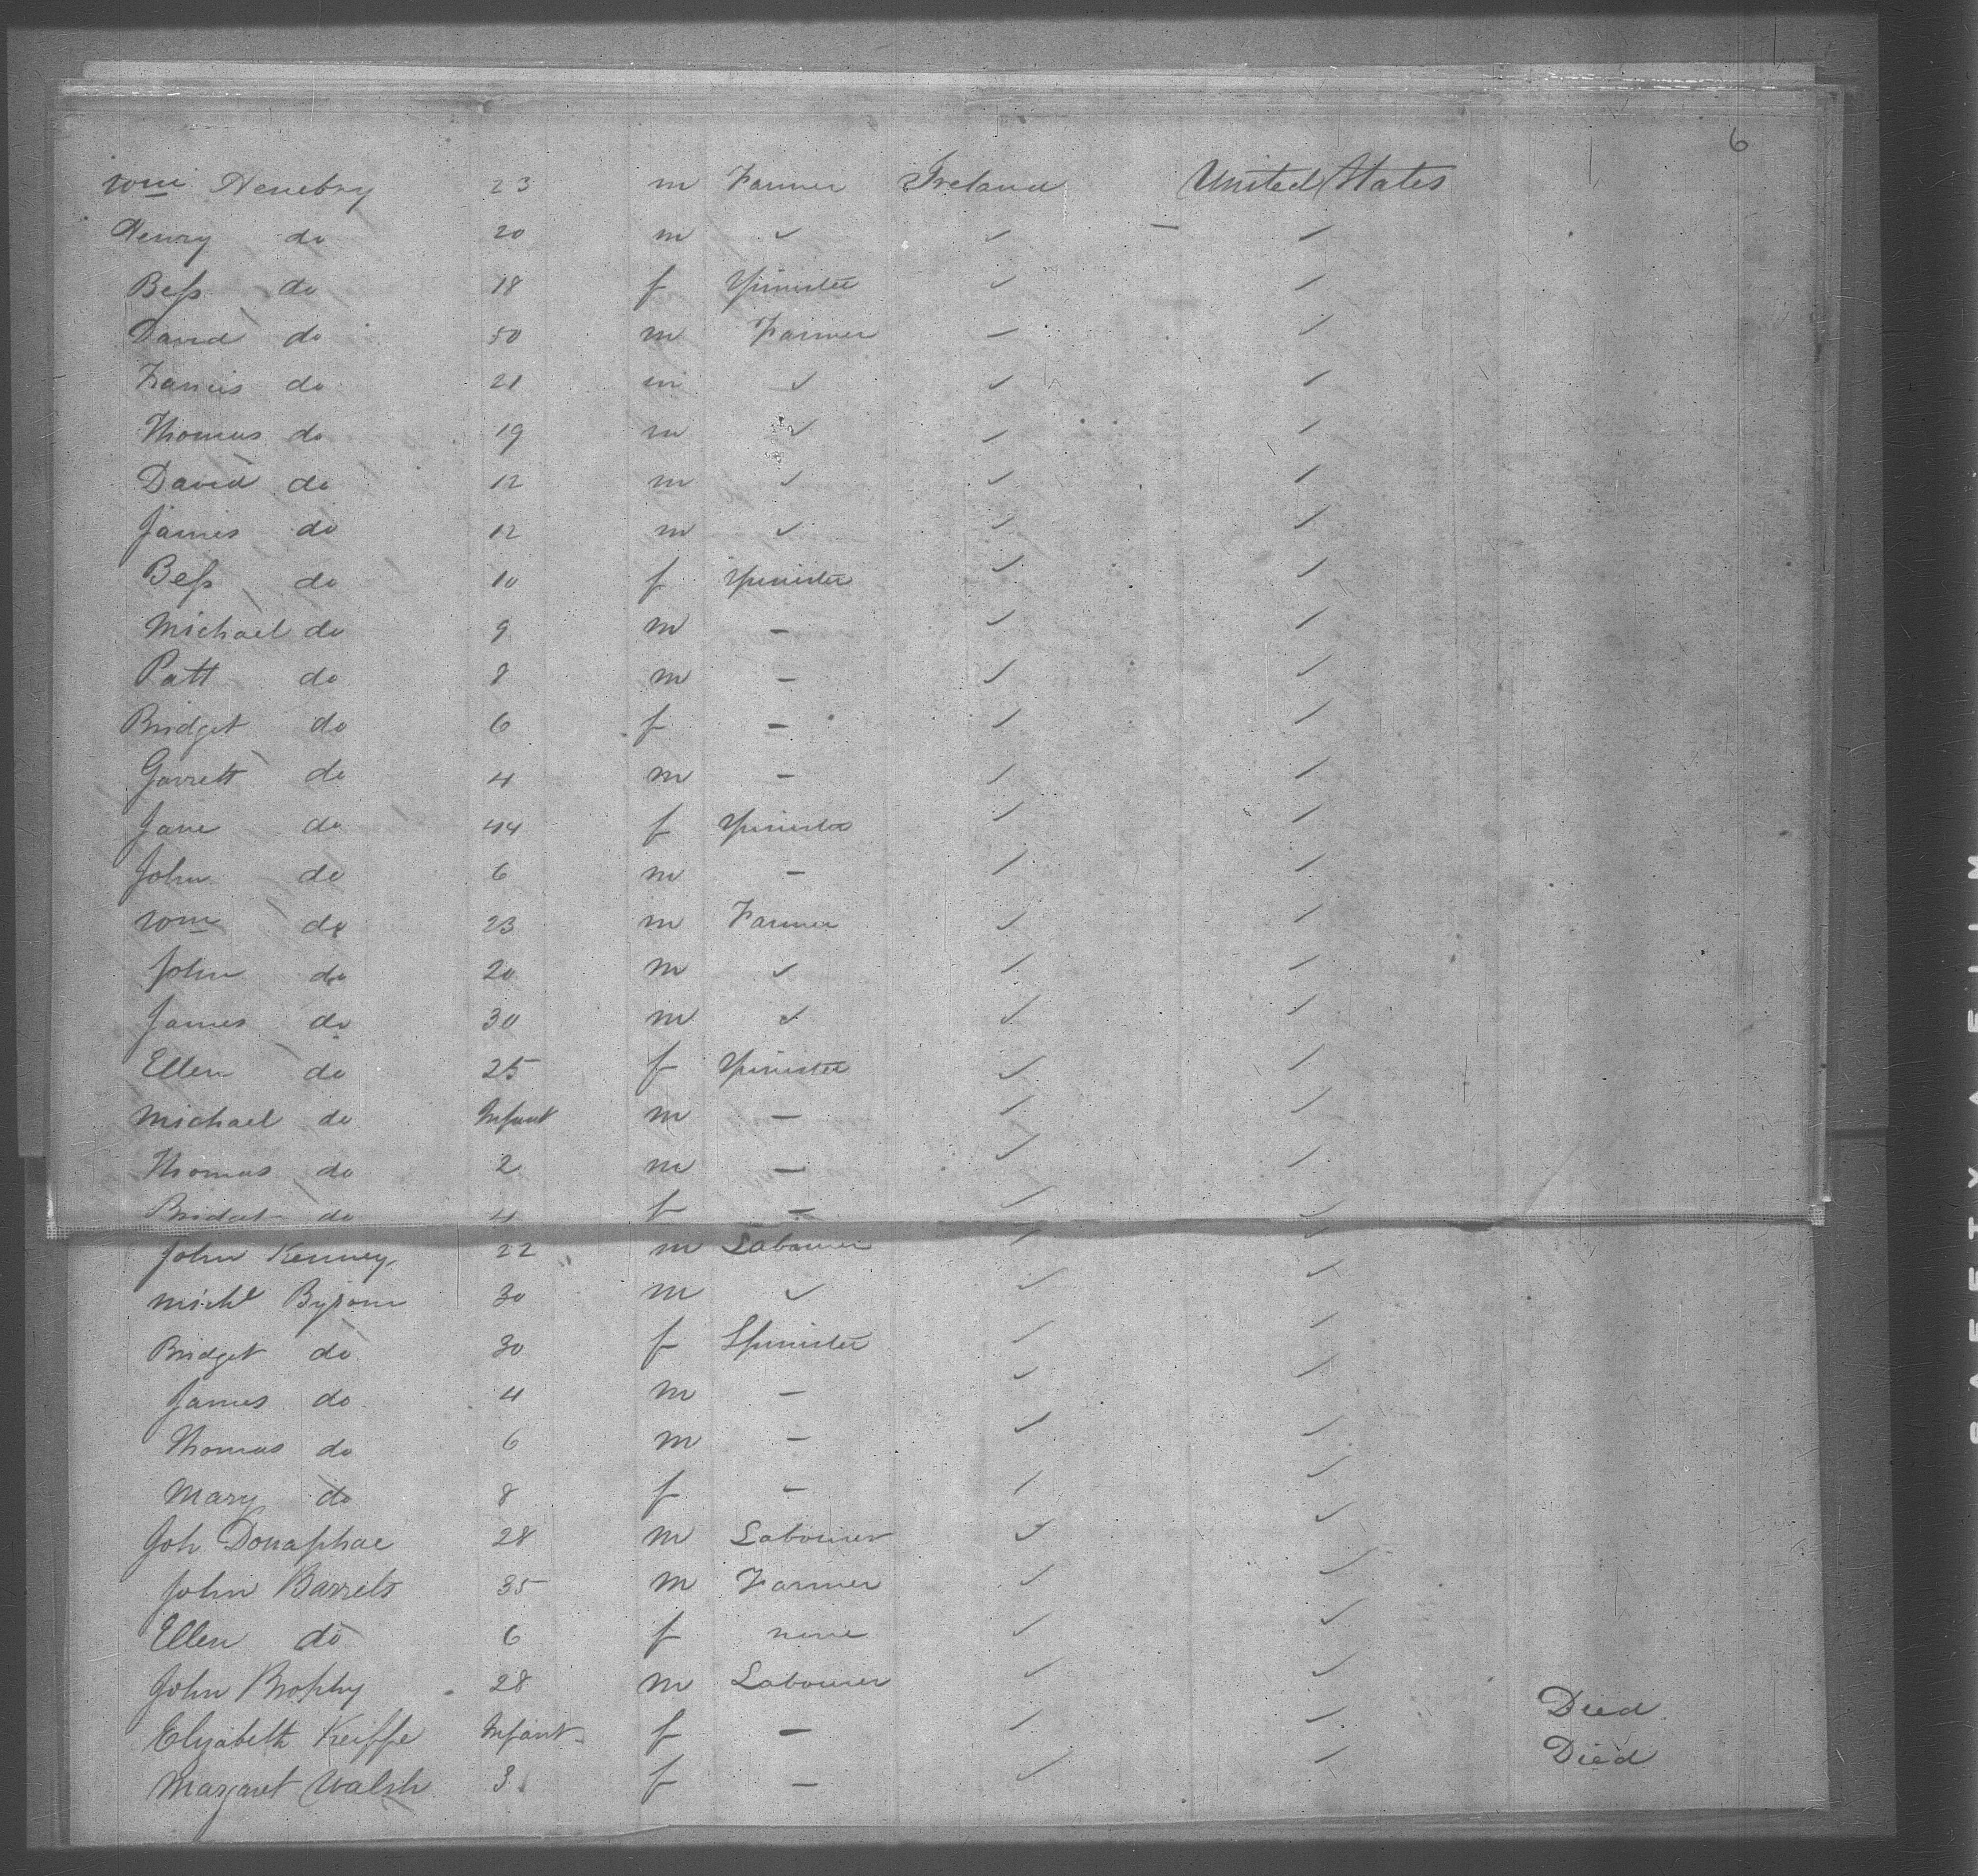 6
Wm Henebry 23 m Farmer Ireland United States
Henry do 20 m ✓ ✓ ✓
Bess do 18 f Spinister ✓ ✓
David do 50 m Farmer ✓ ✓
Francis do 21 m ✓ ✓ ✓
Thomas do 19 m ✓ ✓ ✓
David do 12 m ✓ ✓ ✓
James do 12 m ✓ ✓ ✓
Bess do 10 f Spinister ✓ ✓
Michael do 9 m – ✓ ✓
Patt do 8 m – ✓ ✓
Bridget do 6 f – ✓ ✓
Garrett do 4 m – ✓ ✓
Jane do 44 f Spinister ✓ ✓
John do 6 m – ✓ ✓
Wm do 23 m Farmer ✓ ✓
John do 20 m ✓ ✓ ✓
James do 30 m ✓ ✓ ✓
Ellen do 25 f Spinister ✓ ✓
Michael do Infant m – ✓ ✓
Thomas do 2 m – ✓ ✓
Bridget do 4 f – ✓ ✓
John Kenney 22 m Labourer ✓ ✓
Michl 30 m ✓ ✓ ✓
Bridget do 30 f Spinister ✓ ✓
James do 4 m – ✓ ✓
Thomas do 6 m – ✓ ✓
Mary do 8 f – ✓ ✓
Joh 28 m Labourer ✓ ✓
John Barrets 35 m Farmer ✓ ✓
Ellen do 6 f none ✓ ✓
John Brophy 28 m Labourer ✓ ✓
Elizabeth Keiffe Infant f – ✓ ✓ Died
Margaret Walsh 3 f – ✓ ✓ Died
SAFETY FILM